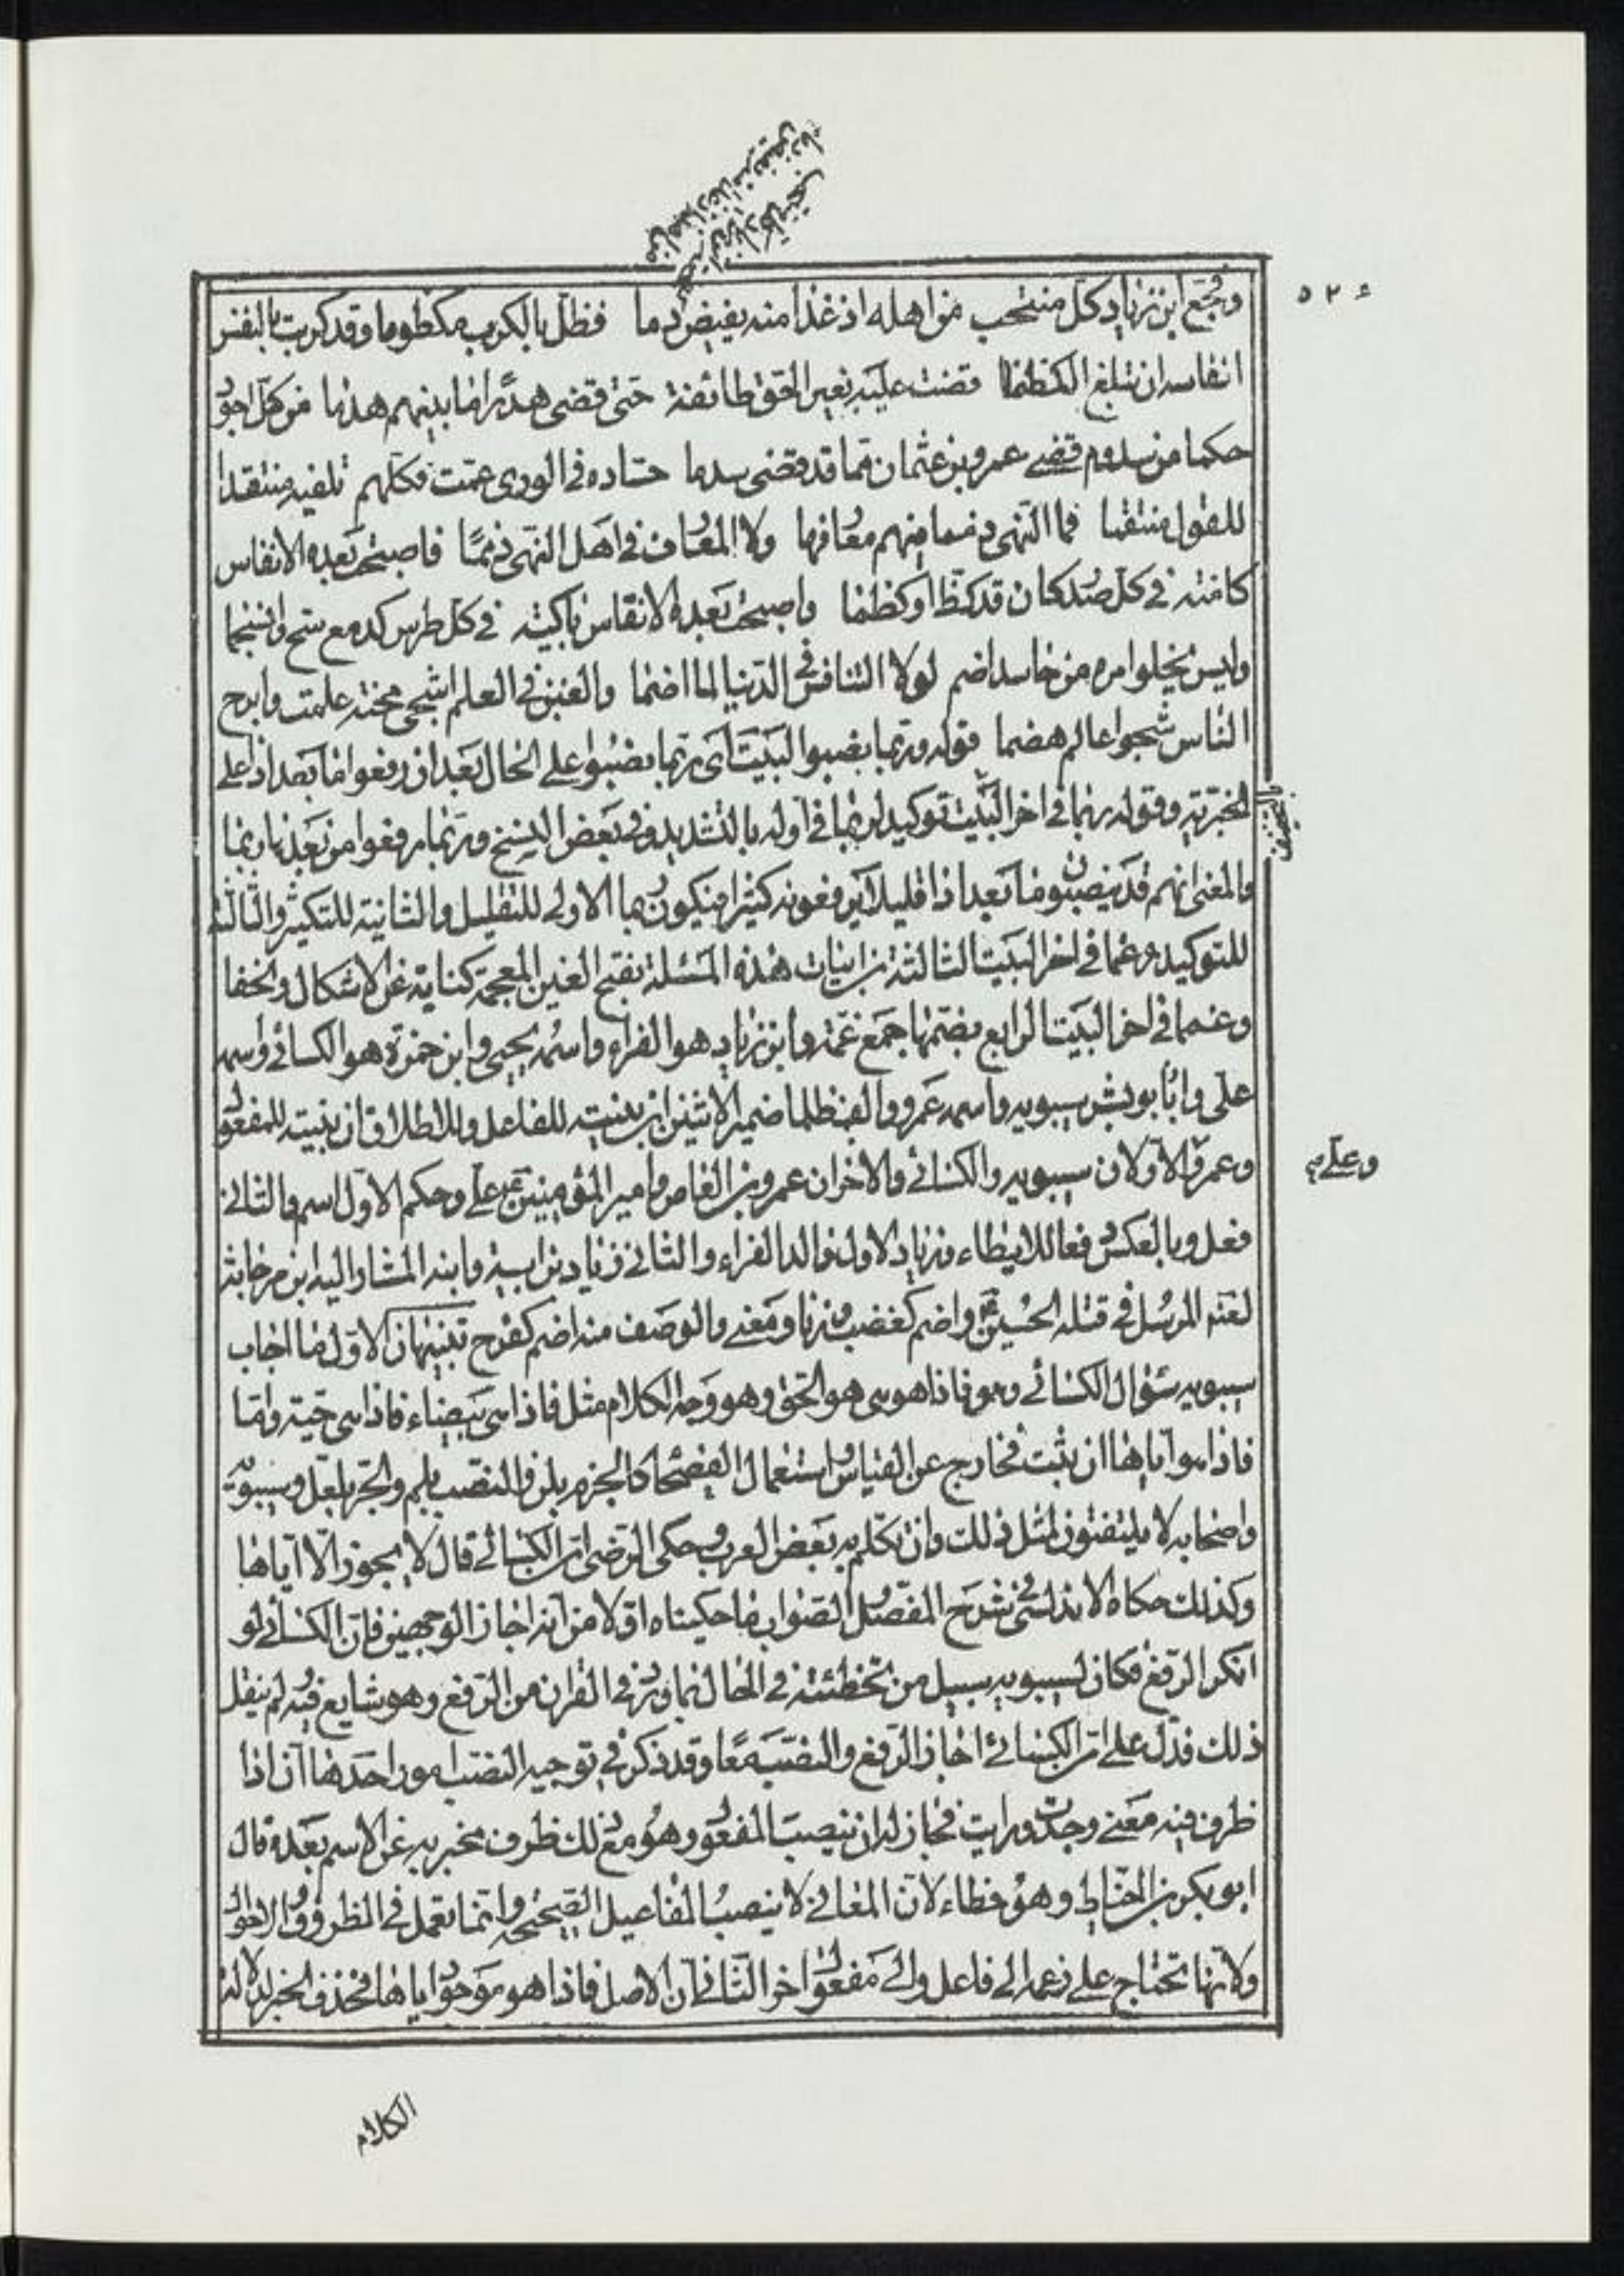 ٥٢٤
وفجع ابن زياد كل منتحب من اهله اذ غدا منه يفيض دما فظل بالكرب مكظوما وقد كربت بالنفس
انفاسه ان تبلغ الكظما قضت عليه بغير الحق طائفة حتى قضى هدرا ما بينهم هدما من كل اجور
حكما من سدوم قضى عمرو بن عثمان مما قد قضى سدما حساده في الورى عمت فكلهم تلفيه منتقدا
للقول منتقما فما النهى ذمما فيهم معارفها ولا المعارف في اهل النهى ذمما فاصبحت بعده الانفاس
كامنة في كل صدر كان قد كظ او كظما واصبحت بعده الانقاس باكية في كل طرس كدمع سح وانسجما
وليس يخلوا امرء من حاسد اضم لولا التنافس في الدنيا لما اضما والغبن في العلم اشجى محنة علمت وابرح
الناس شجوا عالم هضما قوله وربما نصبوا البيت اى ربما نصبوا على الحال بعد ان رفعوا ما بعد اذا على
الخبرية وقوله ربما في اخر البيت توكيد لربما في اوله بالتشديد وفي بعض النسخ وربما رفعوا من بعدها ربما
بالتخفيف
والمعنى انهم قد ينصبون ما بعد اذا قليلا ويرفعونه كثيرا فيكون ربما الاولى للتقليل والثانية للتكثير والثالثة
للتوكيد وغما في اخر البيت الثالث من ابيات هذه المسئلة بفتح الغين المعجمة كناية عن الاشكال والخفا
وغمما في اخر البيت الرابع بضمها جمع غمة وابن زياد هو الفراء واسمه يحيى وابن حمزة هو الكسائى واسمه
على وابا بو بشر سيبويه واسمه عمرو والف ظلما ضمير الاثنين ان بنيته للفاعل وللاطلاق ان بنيته للمفعول
وعمرو الاولان سيبويه والكسائى والاخران عمرو بن العاص وامير المؤمنين على وحكم الاول اسم والثاني
وعلى
فعل وبالعكس دفعا للايطاء وزياد الاول والد الفراء والثاني زياد بن ابيه وابنه المشار اليه ابن مرجانة
لعنه المرسل في قتله الحسين واضم كغضب وزنا ومعنى والوصف منه اضم كفرح تنبيهان الاول ما اجاب
سيبويه سؤال الكسائى وهو فاذا هو هى هو الحق وهو وجه الكلام مثل فاذا هى بيضاء فاذا هى حية واما
فاذا هو اياها ان ثبت فخارج عن القياس واستعمال الفصحا كالجزم بلن والنصب بلم والجر بلعل وسيبويه
واصحابه لا يلتفتون لمثل ذلك وان تكلم به بعض العرب وحكى الرضى ان الكسائى قال لا يجوز الا اياها
وكذلك حكاه الاندلسى في شرح المفصل والصواب ما حكيناه اولا من انه اجاز الوجهين فان الكسائى لو
انكر الرفع فكان لسيبويه سبيل من تخطئته في الحال بما ورد في القران من الرفع وهو شايع فيه لم ينقل
ذلك فدل على ان الكسائى اجاز الرفع والنصب معا وقد ذكر في توجيه النصب امور احدها ان اذا
ظرف فيه معنى وجدت ورايت فجاز له ان ينصب المفعول وهو مع ذلك ظرف مخبر به عن الاسم بعده قال
ابو بكر بن الخياط وهو خطاء لان المعاني لا ينصب المفاعيل الصحيحة وانما تعمل في الظروف والاحوال
ولانها تحتاج على زعمه الى فاعل والى مفعول اخر الثاني ان الاصل فاذا هو موجود اياها فحذف الخبر لدلالة
الكلام